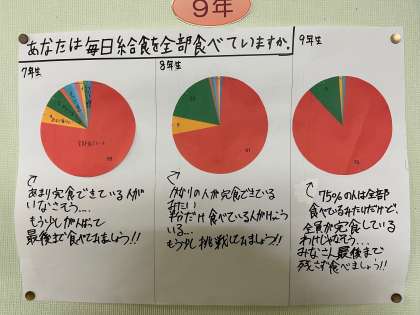 9年
あなたは毎日給食を全部食べていますか。
7年生
あまり完食できている人が
いなさそう…。
もう少しがんばって
最後まで食べてみましょう!!
8年生
かなりの人が完食できている
みたい
半分だけ食べている人がけっこう
いる…
もう少し挑戦してみましょう!!
9年生
75%の人は全部
食べているみたいだけど、
全員が完食している
わけじゃなそう…
みなさん最後まで
残さず食べましょう!!